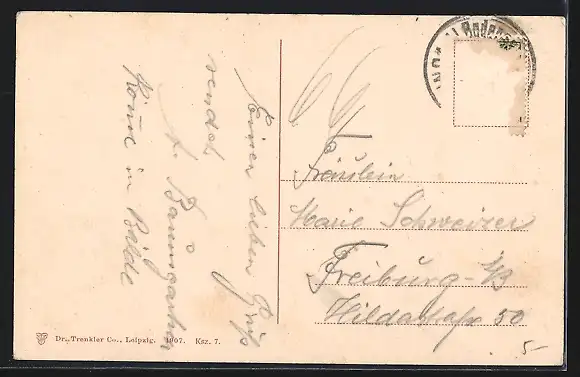 Einen lieben Gruß
sendet
A. Baumgartner
Komme in Bälde
Fräulein
Marie Schweizer
Freiburg i/B
Hildastraße 50
Dr. Trenkler Co., Leipzig. 1907. Ksz. 7.
5-